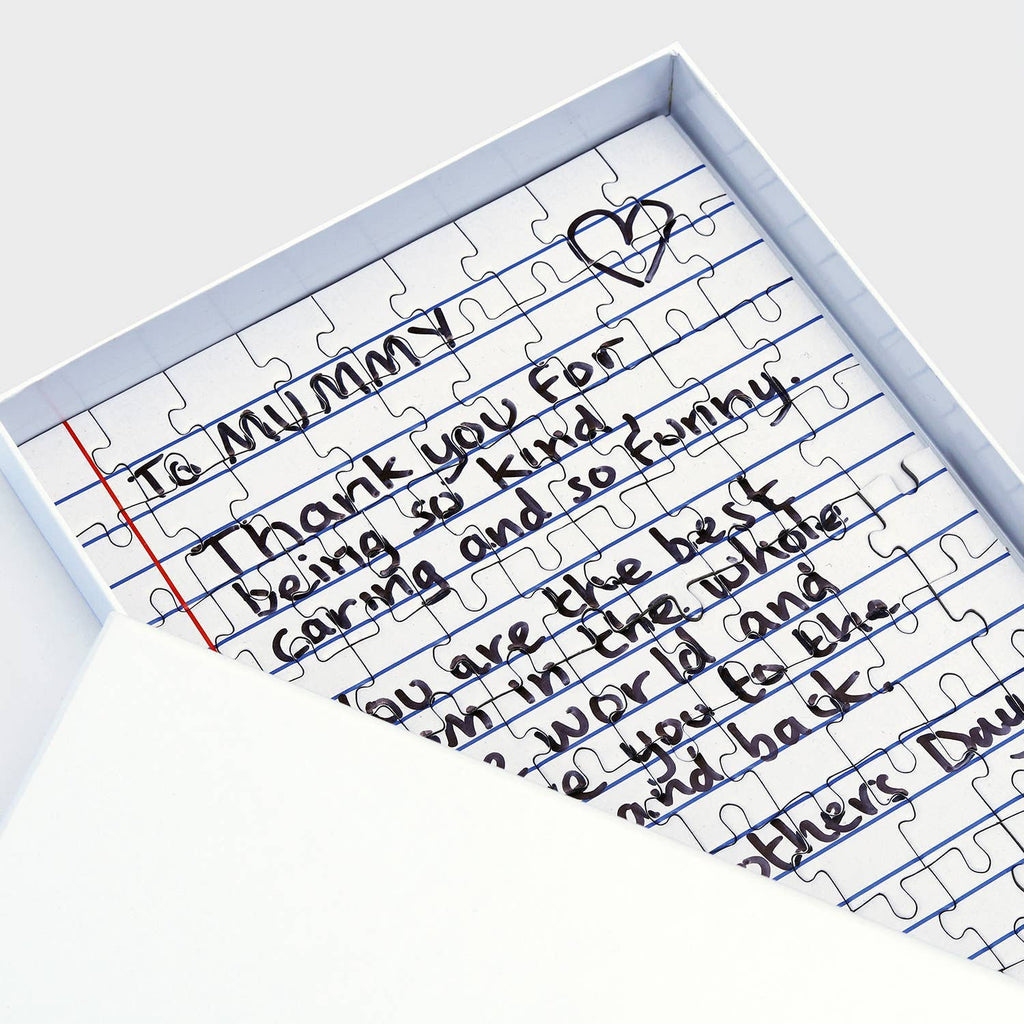 To MUMMY
Thank you for
being so kind
caring and so funny.
You are the best
in the whole
world and
you to the
and back.
Day